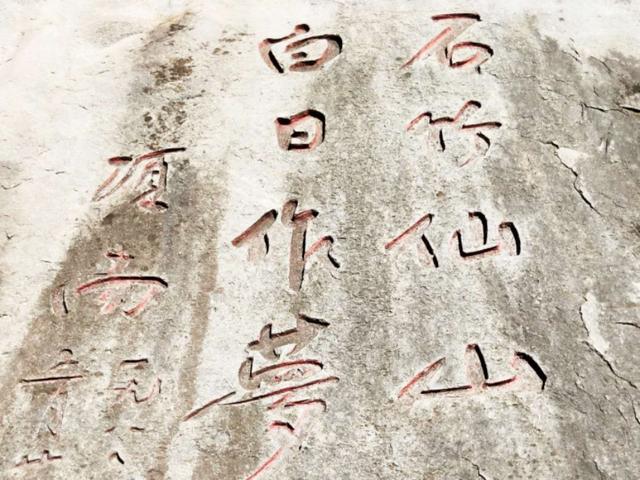 石竹仙山
白日作梦
项南